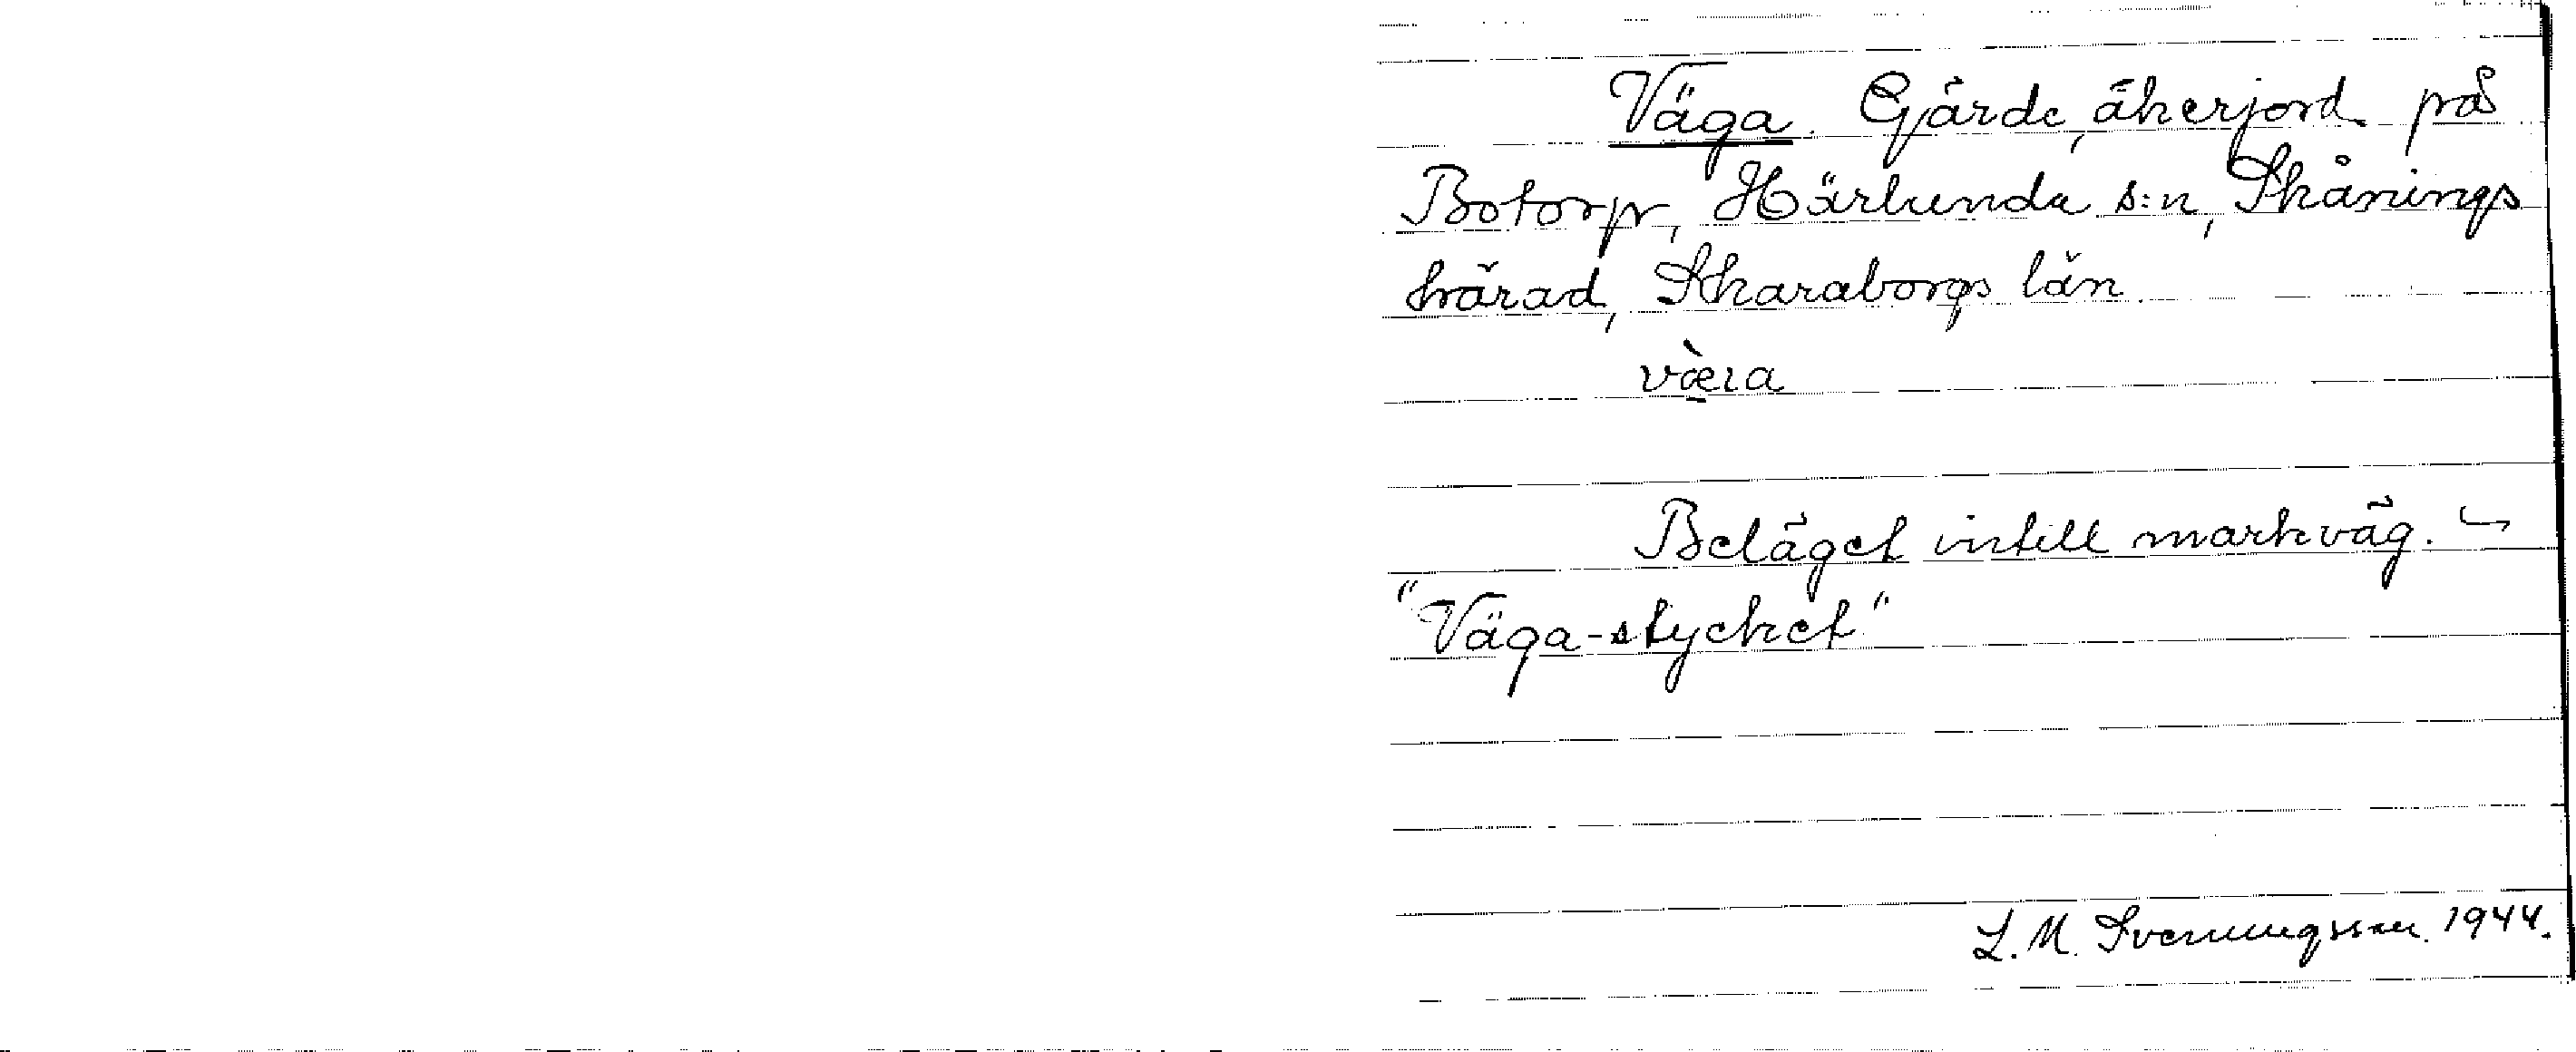 Väga. Gärde, åkerjord på
Botorp, Härlunda s:n, Skånings
härad, Skaraborgs län.
Beläget intill markväg.
"Väga-stycket"
L. M. Svenningsson. 1944.